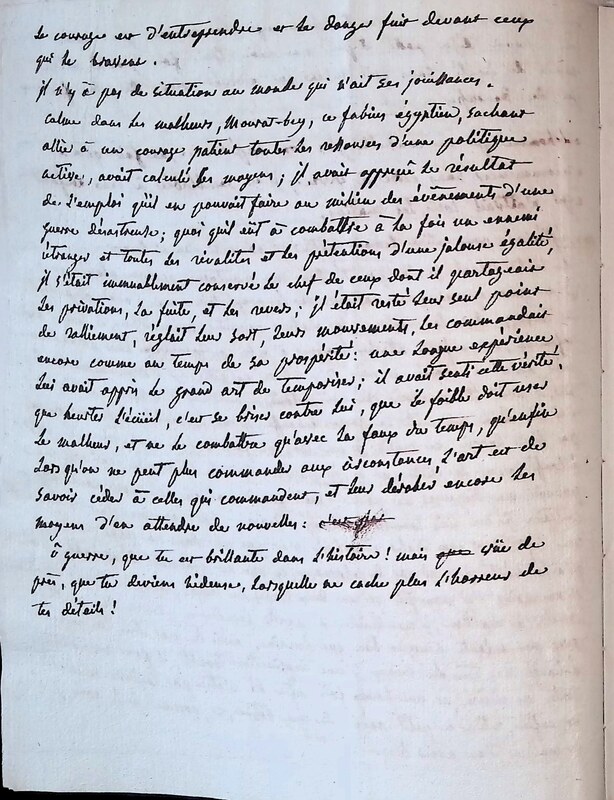 Le courage est d'entreprendre et le danger fuit devant ceux
qui le bravent.
jl n'y à pas de situation au monde qui n'ait ses jouissances.
Calme dans les malheurs, Mourat-bey, ce fabius égyptien, sachant
allier à un courage patient toutes les ressources d'une politique
active, avait calculé ses moyens; jl avait apprecié le résultat
de l'emploi qu'il en pouvait faire au milieu des évênements d'une
guerre désastreuse; quoi qu'il eût à combattre à la fois un ennemi
étranger et toutes les rivalités et les prétentions d'une jalouse égalité,
jl s'était immuablement conservé le chef de ceux dont il partageait
les privations, la fuite, et les revers; jl était resté leur seul point
de ralliement, réglait leur sort, leurs mouvements, les commandait
encore comme au temps de sa prospérité: une longue expérience
lui avait appris le grand art de temporiser; il avait senti cette vérité,
que heurter l'écüeil, c'est se briser contre lui, que le foible doit user
le malheur, et ne le combattre qu'avec la faux du temps, qu'enfin
lors qu'on ne peut plus commander aux circonstances, l'art est de
savoir céder à celles qui commandent, et leur dérober encore les
moyens d'en attendre de nouvelles:
ô guerre, que tu es brillante dans l'histoire! mais que vüe de
près, que tu deviens hideuse, lorsquelle ne cache plus l'horreur de
tes détails!